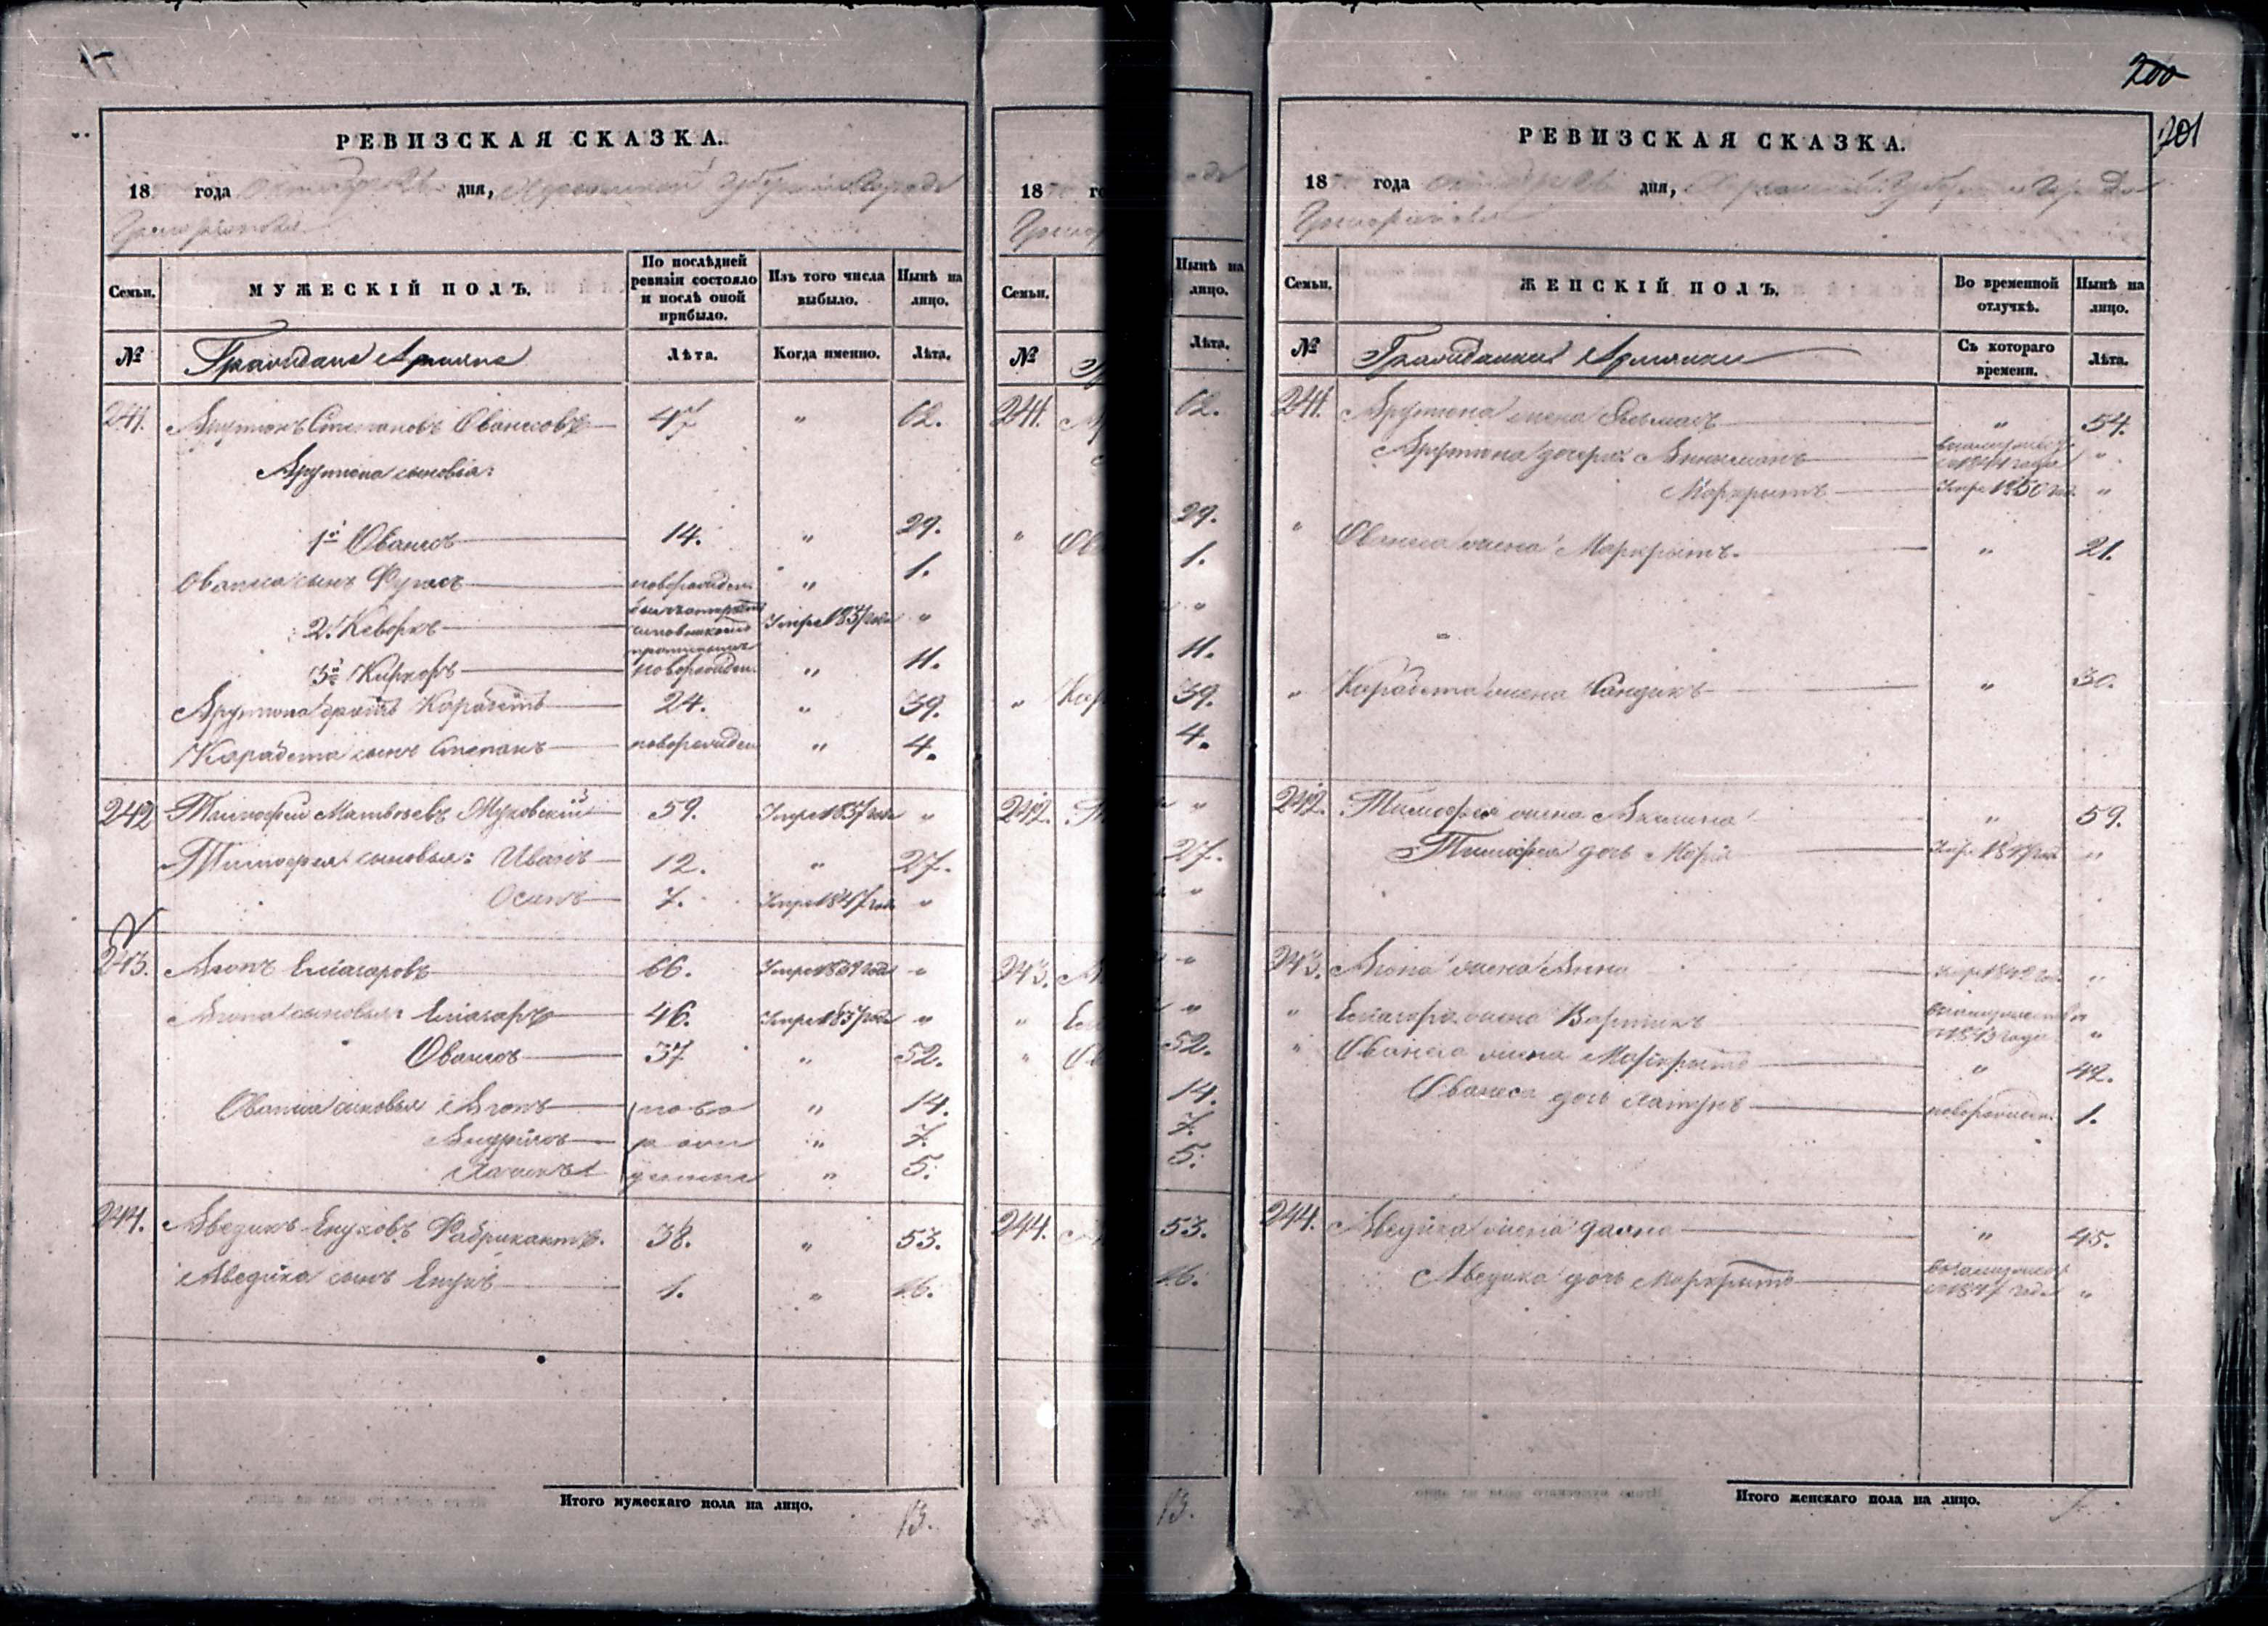 РЕВИЗСКАЯ СКАЗКА.
18 года октября дня, Херсонской Губернии Города
Григоріополя
Семьи. МУЖЕСКІЙ ПОЛЪ. По послѣдней ревизіи состояло и послѣ оной прибыло. Изъ того числа выбыло. Нынѣ на лицо.
№ Граждане Армяне Лѣта. Когда именно. Лѣта.
241. Арутюнъ Степановъ Овансовъ 47 " 62.
Арутюна сыновья:
1й Овансъ 14. " 29.
Ованеса сынъ новорожден " 1.
2й Кеворкъ Умре 1837 года "
3й Киркоръ новорожден. " 11.
Арутюна братъ Карабетъ 24. " 39.
Карабета сынъ Степанъ новорожден " 4.
242 Тимофей Матвѣевъ Жуковскій 59. Умре 1837 года "
Тимофея сыновья: Иванъ 12. " 27.
Осипъ 7. Умре 1847 года "
243. Агопъ Егіазаровъ 66. Умре 1839 года "
Агопа сыновья: Егіазаръ 46. Умре 1837 года "
Овансъ 37 " 52.
Ованеса сыновья Агопъ ново " 14.
Андреасъ рож " 7.
Хачикъ денные " 5.
244. Аведикъ Енуковъ Фабрикантъ. 38. " 53.
Аведика сынъ Енукъ 1. " 16.
Итого мужескаго пола на лицо. 13.
18
Семьи.
№
241.
"
"
242.
243.
"
"
244.
Нынѣ на лицо.
Лѣта.
62.
29.
1.
"
11.
39.
4.
"
27.
"
"
"
52.
14.
7.
5.
53.
16.
13.
200
201
РЕВИЗСКАЯ СКАЗКА.
18 года октября дня, Херсонской Губерніи Города
Григоріополя
Семьи. ЖЕНСКІЙ ПОЛЪ. Во временной отлучкѣ. Нынѣ на лицо.
№ Гражданки Армянки Съ котораго времени. Лѣта.
241. Арутюна жена " 54.
Арутюна дочери: взамужест. "
Маркритъ Умре 1850 год. "
" Ованеса жена Маркритъ. " 21.
" Карабета жена " 30.
242. Тимофея жена Акилина " 59.
Тимофея дочь Марія Умре 1847 год "
243. Агопа жена Анна Умре 1842 год. "
" Егіазара жена Вартикъ взамужество "
" Ованеса жена Маркритъ " 42.
Ованеса дочь новорожден. 1.
244. Аведика жена " 45.
Аведика дочь Маркритъ взамужест. 1847 года "
Итого женскаго пола на лицо.